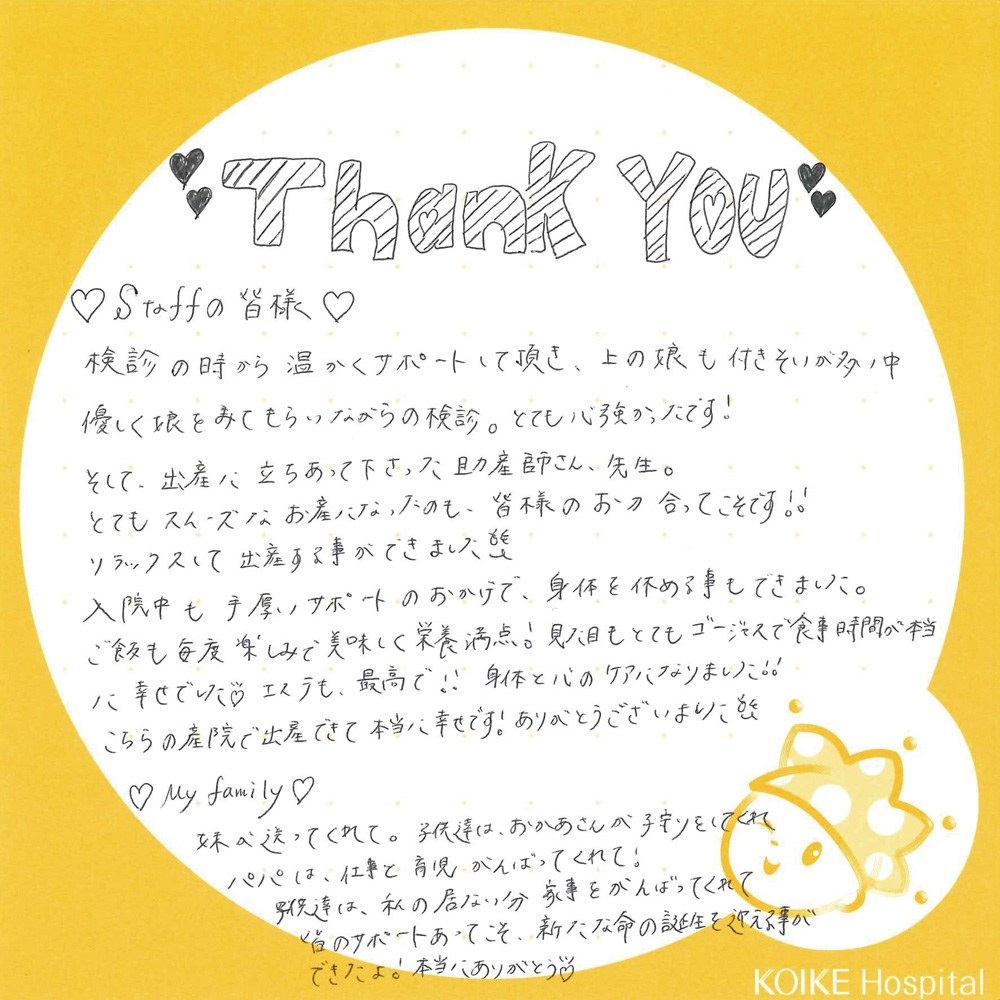 Thank You
♡ Staffの皆様 ♡
検診の時から温かくサポートして頂き、上の娘も付きそいが多い中
優しく娘をみてもらいながらの検診。とても心強かったです!
そして、出産に立ちあって下さった助産師さん、先生。
とてもスムーズなお産になったのも、皆様のお力合ってこそです!!
リラックスして出産する事ができました
入院中も手厚いサポートのおかげで、身体を休める事もできました。
ご飯も毎度楽しみで美味しく栄養満点!見た目もとてもゴージャスで食事時間が本当
に幸せでした♡エステも、最高で!!身体と心のケアになりました!!
こちらの産院で出産できて本当に幸せです!ありがとうございました
♡ My family ♡
妹が送ってくれて。子供達は、おかあさんが子守りをしてくれ
パパは、仕事と育児がんばってくれて!
子供達は、私の居ない分家事をがんばってくれて
皆のサポートあってこそ、新たな命の誕生を迎える事が
できたよ!本当にありがとう♡
KOIKE Hospital